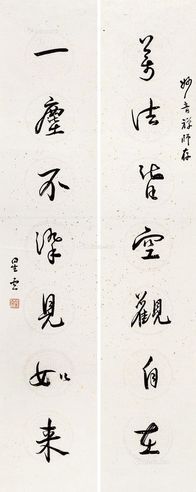 妙吉祥师存
萬法皆空觀自在
一塵不染見如来
星雲